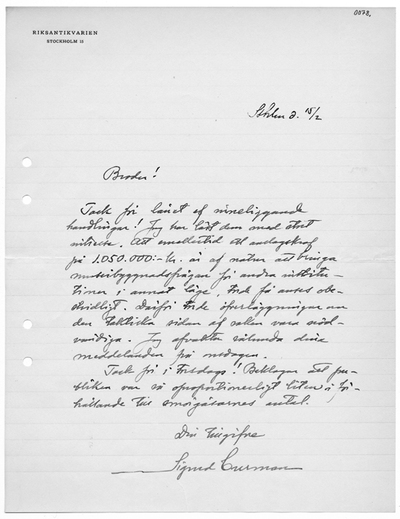 0078.
RIKSANTIKVARIEN
STOCKHOLM 15
Sthlm d. 15/2
Broder!
Tack för lånet af inneliggande
handlingar! Jag har läst dem med stort
intresse. Att emellertid ett anslagskraf
på 1.050.000:- kr. är af natur att bringa
museibyggnadsfrågan för andra institu-
tioner i annat läge, torde få anses obe-
stridligt. Därför torde öfverläggningar om
den taktiska sidan af saken vara nöd-
vändiga. Jag afvaktar sålunda dina
meddelanden på onsdagen.
Tack för i Tisdags! Beklagar att pu-
bliken var så oproportionerligt liten i för-
hållande till smörgåsarnas antal.
Din tillgifne
Sigurd Curman